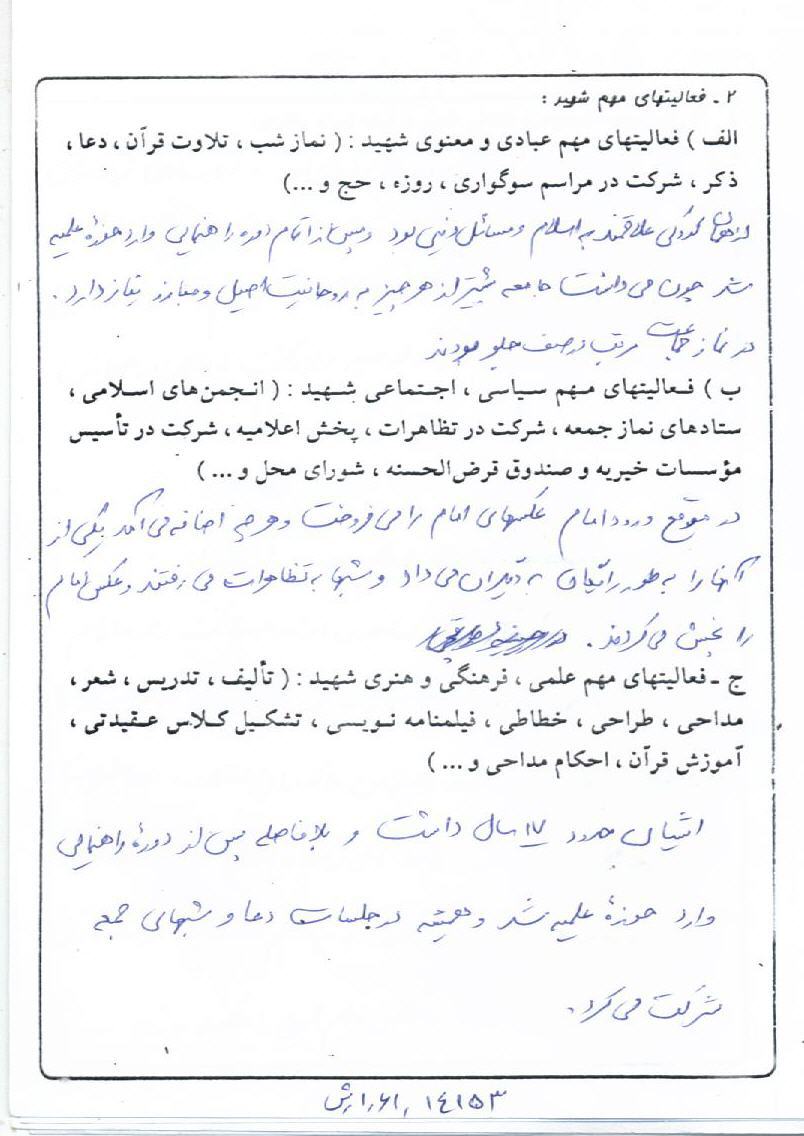 ۲ ـ فعالیتهای مهم شهید :
الف ) فعالیتهای مهم عبادی و معنوی شهید : ( نماز شب ، تلاوت قرآن ، دعا ،
ذکر ، شرکت در مراسم سوگواری ، روزه ، حج و ...)
از همان کودکی علاقمند به اسلام و مسائل دینی بود و پس از اتمام دوره راهنمایی وارد حوزهٔ علمیه
شد چون می دانست جامعه بیشتر از هر چیز به روحانیت اصیل و مبارز نیاز دارد .
در نماز جماعت مرتب در صف جلو بودند
ب ) فعالیتهای مهم سیاسی ، اجتماعی شهید : ( انجمن‌های اسلامی ،
ستادهای نماز جمعه ، شرکت در تظاهرات ، پخش اعلامیه ، شرکت در تأسیس
مؤسسات خیریه و صندوق قرض‌الحسنه ، شورای محل و ... )
در موقع ورود امام عکسهای امام را می فروخت و هر چه اضافه می آمد یکی از
آنها را به طور رایگان به دیگران می داد و شبها به تظاهرات می رفتند و عکس امام
را پخش می کردند .
ج ـ فعالیتهای مهم علمی ، فرهنگی و هنری شهید : ( تألیف ، تدریس ، شعر ،
مداحی ، طراحی ، خطاطی ، فیلمنامه نویسی ، تشکیل کلاس عقیدتی ،
آموزش قرآن ، احکام مداحی و ... )
ایشان حدود ۱۷ سال داشت و بلافاصله پس از دورهٔ راهنمایی
وارد حوزهٔ علمیه شد و همیشه در جلسات دعا و شبهای جمعه
شرکت می کرد .
۱٤۱۵۳